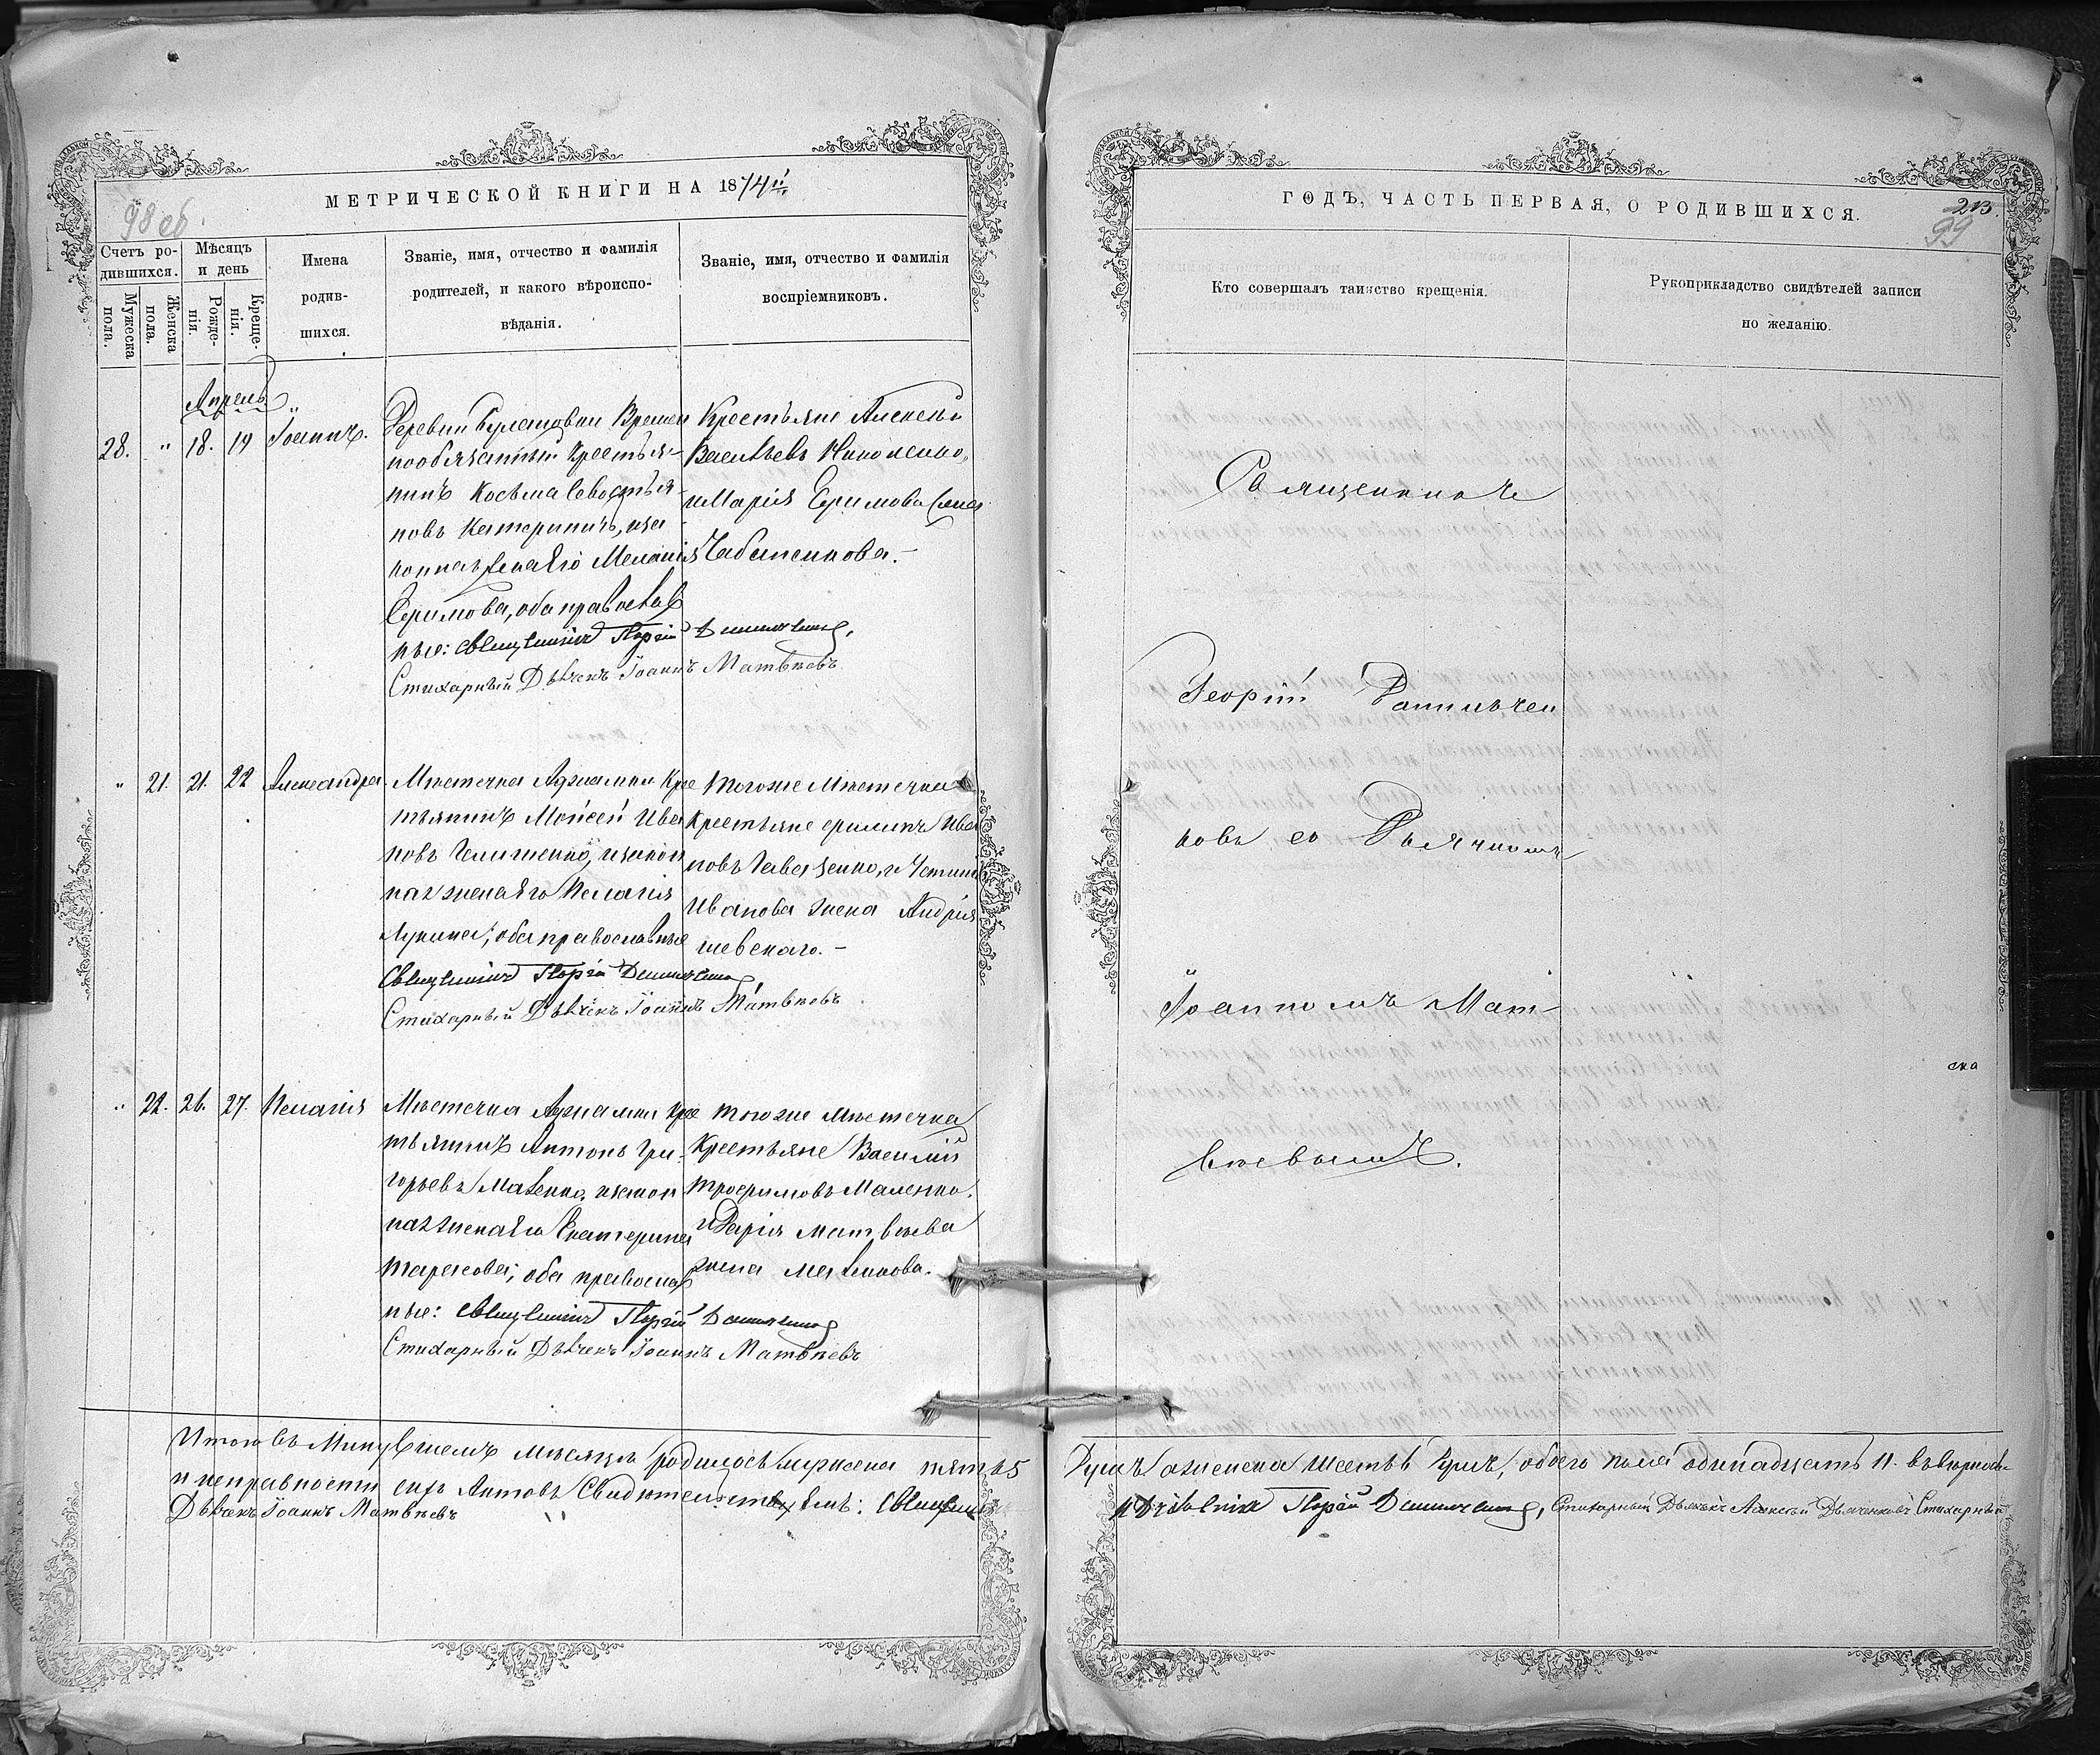 МЕТРИЧЕСКОЙ КНИГИ НА 1874й
98 об.
Счетъ ро-
дившихся.
Мужеска
пола.
Женска
пола.
Мѣсяцъ
и день
Рожде-
нія.
Креще-
нія.
Имена
родив-
шихся.
Званіе, имя, отчество и фамилія
родителей, и какого вѣроиспо-
вѣданія.
Званіе, имя, отчество и фамилія
воспріемниковъ.
Апрель
28. " 18. 19 Іоаннъ.
Деревни Времен
нообязатный Крестья-
нинъ Косьма Севостья-
новъ Катериничъ, иза
коннаяженаЕго Меланія
Ефимова, оба православ
ные: Священникъ Георгій Данильченко,
Стихарный Дьячекъ Іоаннъ Матвѣевъ
Крестьяне Алексѣй
Васильевъ Николенко,
иМарія Ефимова
Чабаненкова.-
" 21. 21. 22 Александра
Мѣстечка Аджамки Крес
тьянинъ Моисей Ива
новъ изакон
наяженаЕго Пелагія
Лукина, оба православные
Священникъ Георгій Данильченко
Стихарный Дьячекъ Іоаннъ Матвѣевъ
тогоже Мѣстечка
Крестьяне Ива
новъ
Иванова жена Андрія
шевскаго.-
" 22. 26. 27. Пелагія
Мѣстечка Аджамки Крес
тьянинъ Антонъ Гри-
горьевъ изакон
наяженаЕго Екатерина
Тарасова; оба православ
ные: Священникъ Георгій Данильченко
Стихарный Дьячекъ Іоаннъ Матвѣевъ
тогоже Мѣстечка
Крестьяне Василий
Трофимовъ Маленко.
иДарія Матвѣева
жена
Итого въ Минувшемъ мѣсяцѣ родилось мужеска пять 5
и неправности сихъ Актовъ Свидѣтельствуемъ: Священ
Дьячекъ Іоаннъ Матвѣевъ
ГОДЪ, ЧАСТЬ ПЕРВАЯ, О РОДИВШИХСЯ.
213.
99
Кто совершалъ таинство крещенія.
Рукоприкладство свидѣтелей записи
по желанію.
Священникъ
Георгій Данильчен
ковъ со Дьячкомъ
Іоанномъ Мат-
вѣевымъ.
ска
Душъ аженска шесть 6 душъ, обоего пола одинадцать 11.
Георгій Данильченко, Стихарный Дьячекъ Алексѣй Стихарный